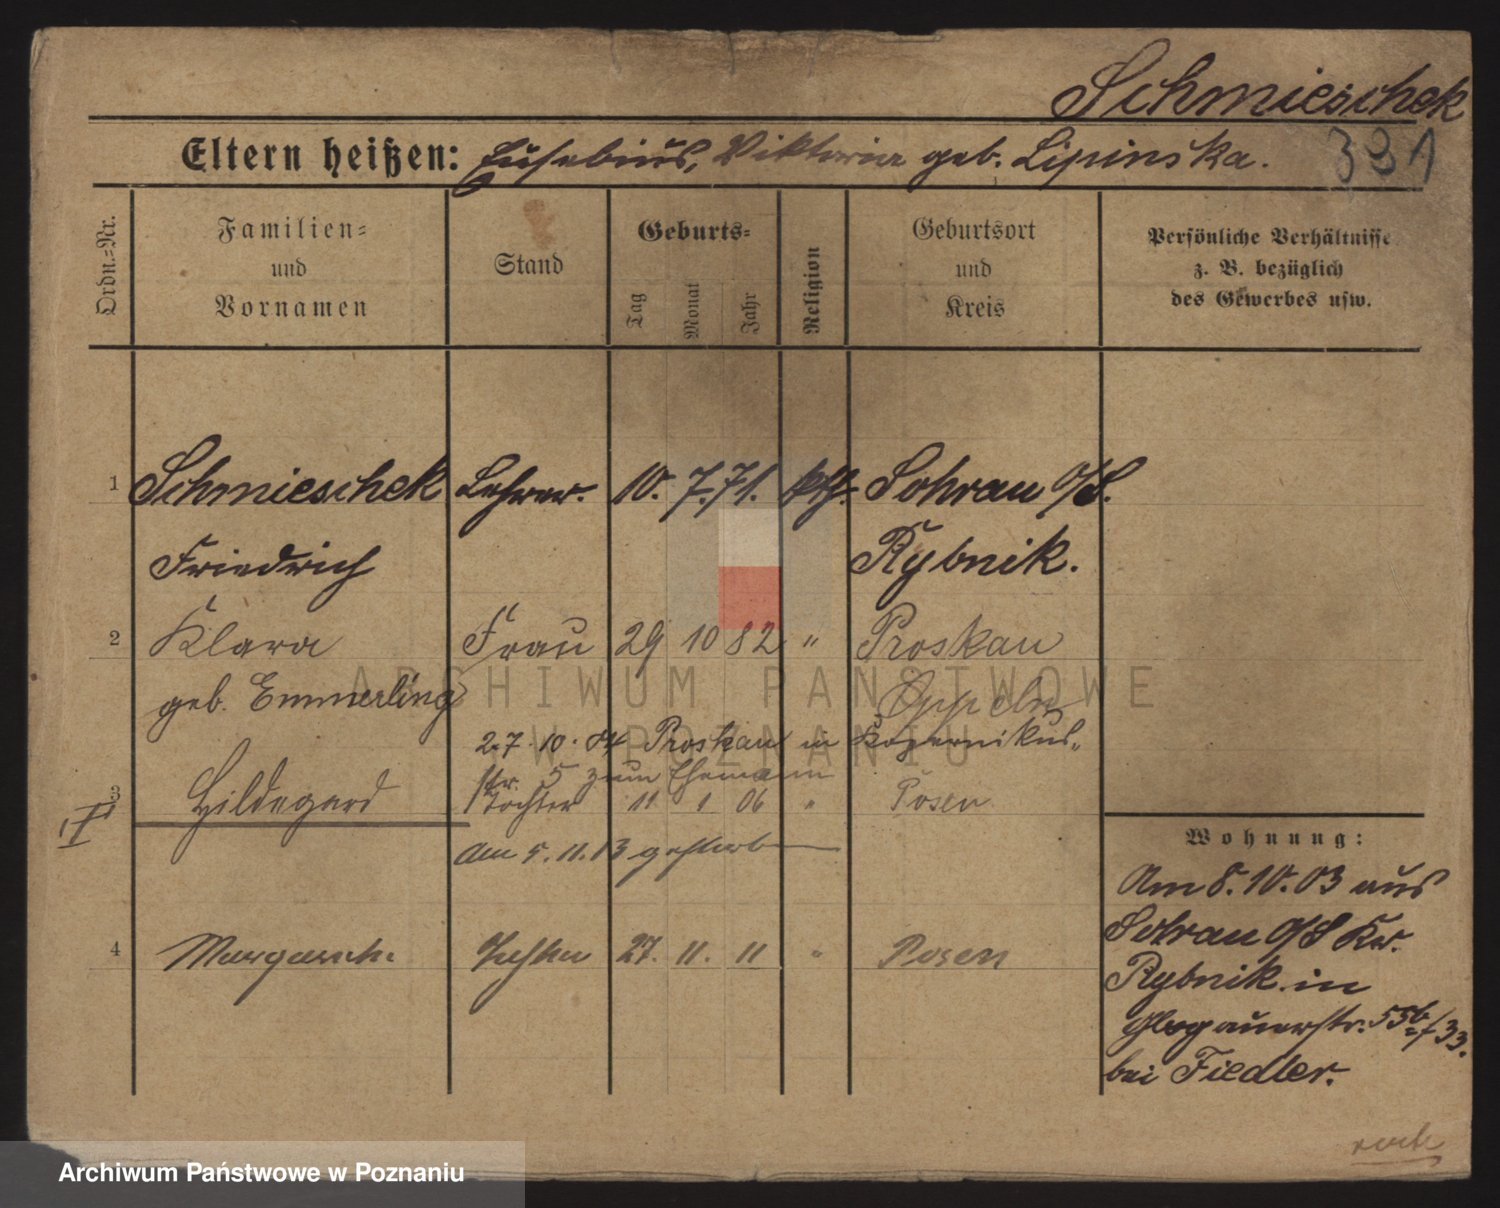 Schmieschek
Eltern heißen: Eusebius, Viktoria geb. Lipinska.
331
Ordn.-Nr.
Familien- und Vornamen
Stand
Geburts-
Tag Monat Jahr
Religion
Geburtsort und Kreis
Persönliche Verhältnisse z. B. bezüglich des Gewerbes usw.
1 Schmieschek Lehrer. 10. 7. 71. kth. Sohrau O/S.
Friedrich Rybnik.
2 Klara Frau 29 10 82 " Proskau
geb. Emmerling Oppeln
27. 10. 04 Proskau in Kopernikus-
str. 5 zum Ehemann
3 Hildegard Tochter 11 1 06 " Posen
Am 5. 11. 13 gestorben
4 Margarethe Tochter 27. 11. 11 " Posen
Wohnung:
Am 8. 10. 03 aus
Sohrau O/S Kr.
Rybnik in
Glogauerstr. 55b
bei Fiedler.
ARCHIWUM PAŃSTWOWE
W POZNANIU
Archiwum Państwowe w Poznaniu